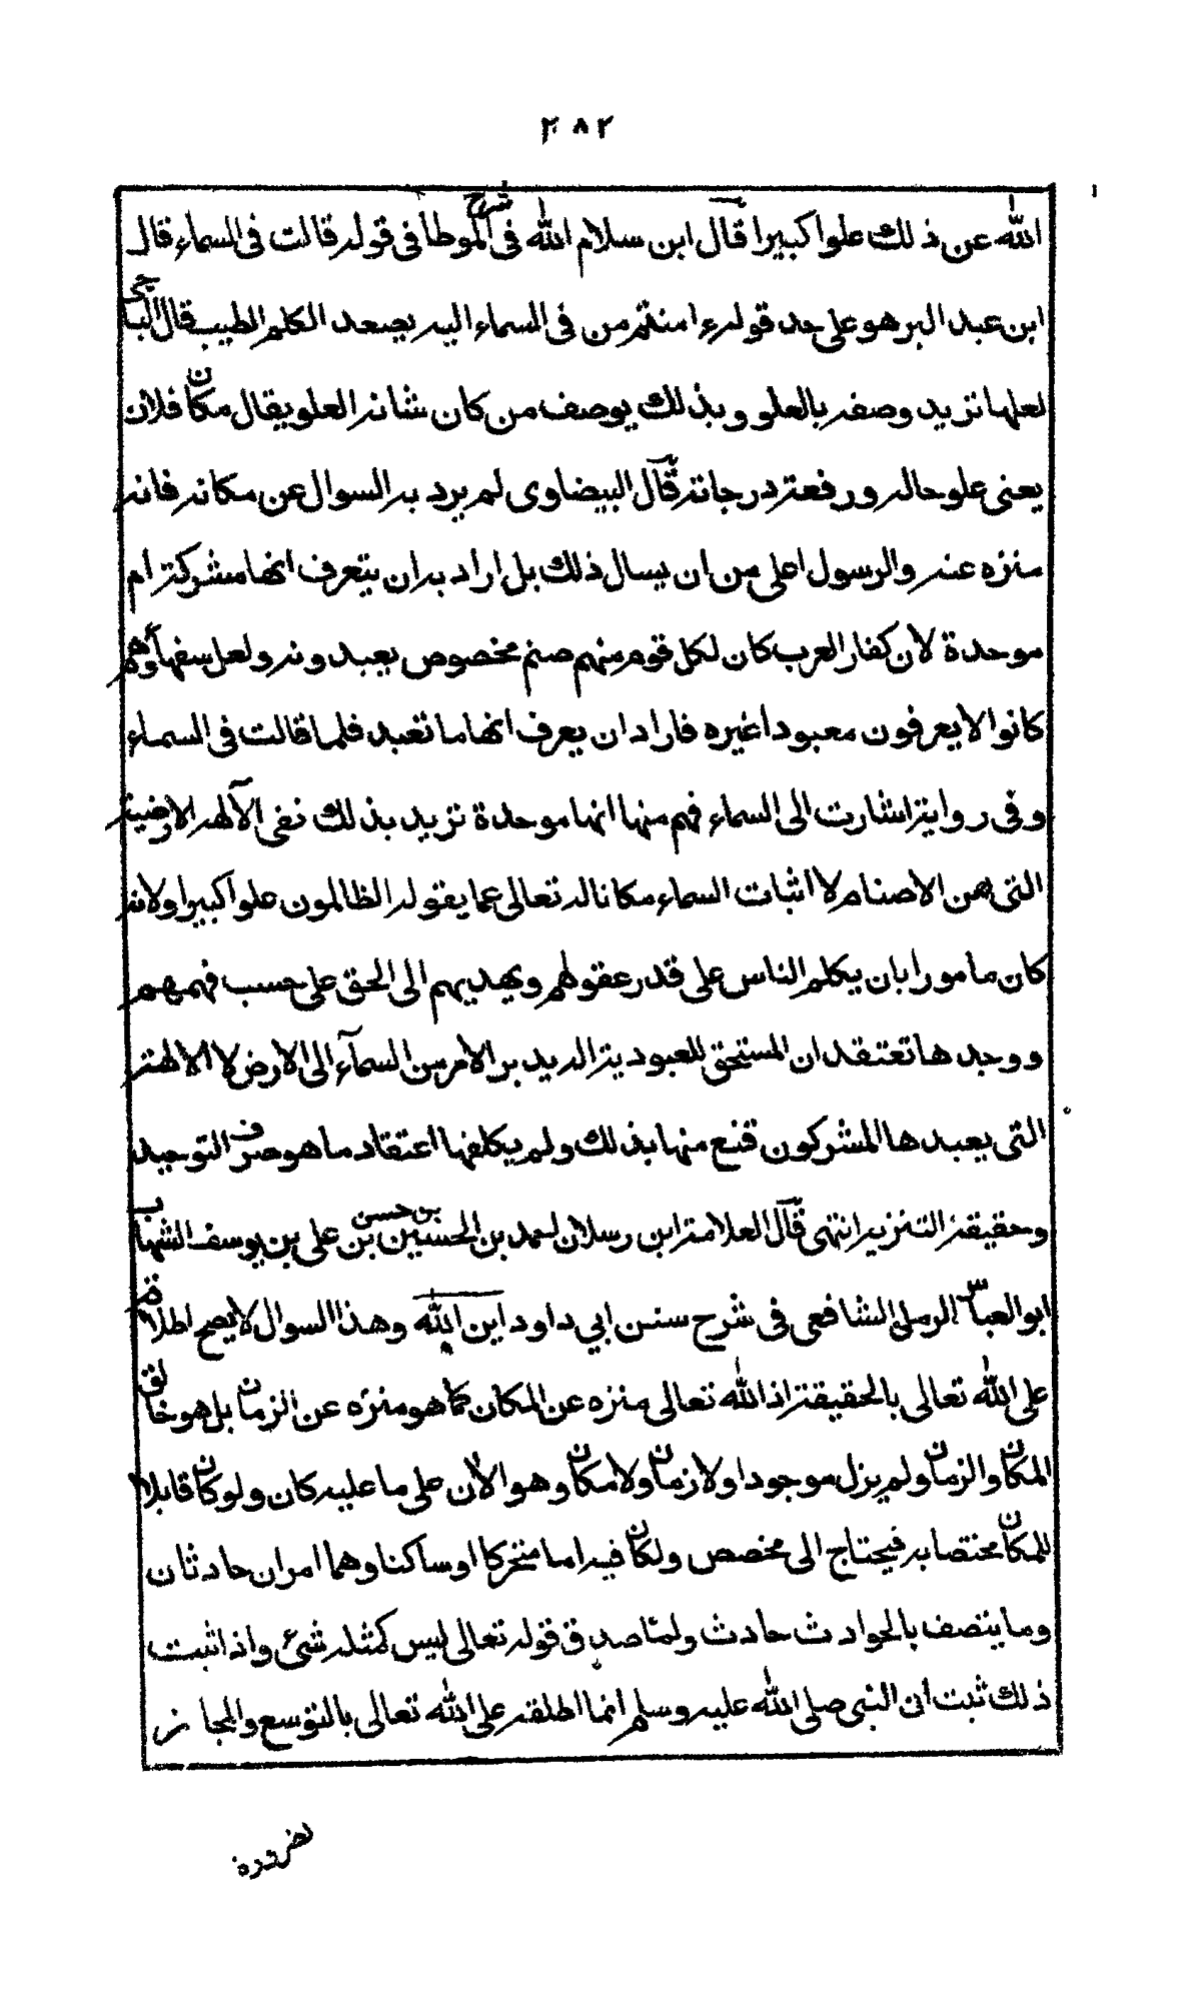 ٢٨٢
الله عن ذلك علوا كبيرا قال ابن سلام الله في شرح الموطا في قوله قالت في السماء قال
ابن عبد البر هو على حد قوله ءامنتم من في السماء اليه يصعد الكلم الطيب قال الباجي
لعلها تريد وصفه بالعلو وبذلك يوصف من كان شانه العلو يقال مكان فلان
يعنى علو حاله ورفعة درجاته قال البيضاوى لم يرد به السوال عن مكانه فانه
منزه عنه والرسول اعلى من ان يسال ذلك بل اراد به ان يتعرف انها مشركة ام
موحدة لان كفار العرب كان لكل قوم منهم صنم مخصوص يعبدونه ولعل سفهاؤهم
كانوا لا يعرفون معبودا غيره فاراد ان يعرف انها ما تعبد فلما قالت في السماء
وفي رواية اشارت الى السماء فهم منها انها موحدة تريد بذلك نفى الآلهه الارضية
التى هن الاصنام لا اثبات السماء مكانا له تعالى عما يقوله الظالمون علوا كبيرا ولانه
كان مامورا بان يكلم الناس على قدر عقولهم ويهديهم الى الحق على حسب فهمهم
ووجدها تعتقد ان المستحق للعبودية الذى يدبر الامر من السمآء الى الارض لا الالهة
التى يعبدها المشركون قنع منها بذلك ولم يكلفها اعتقاد ما هو صرف التوحيد
وحقيقة التنزيه انتهى قال العلامة ابن رسلان احمد بن الحسين بن حسن بن على بن يوسف الشهاب
ابو العباس الرملى الشافعى في شرح سنن ابي داود اين الله وهذا السوال لا يصح اطلاقه
على الله تعالى بالحقيقة اذ الله تعالى منزه عن المكان كما هو منزه عن الزمان بل هو خالق
المكان والزمان ولم يزل موجودا ولا زمان ولا مكان وهو الآن على ما عليه كان ولو كان قابلا
للمكان مختصا به فيحتاج الى مخصص ولكان فيه اما متحركا او ساكنا وهما امران حادثان
وما يتصف بالحوادث حادث ولما صدق قوله تعالى ليس كمثله شئ واذا ثبت
ذلك ثبت ان النبى صلى الله عليه وسلم انما اطلقه على الله تعالى بالتوسع والمجاز